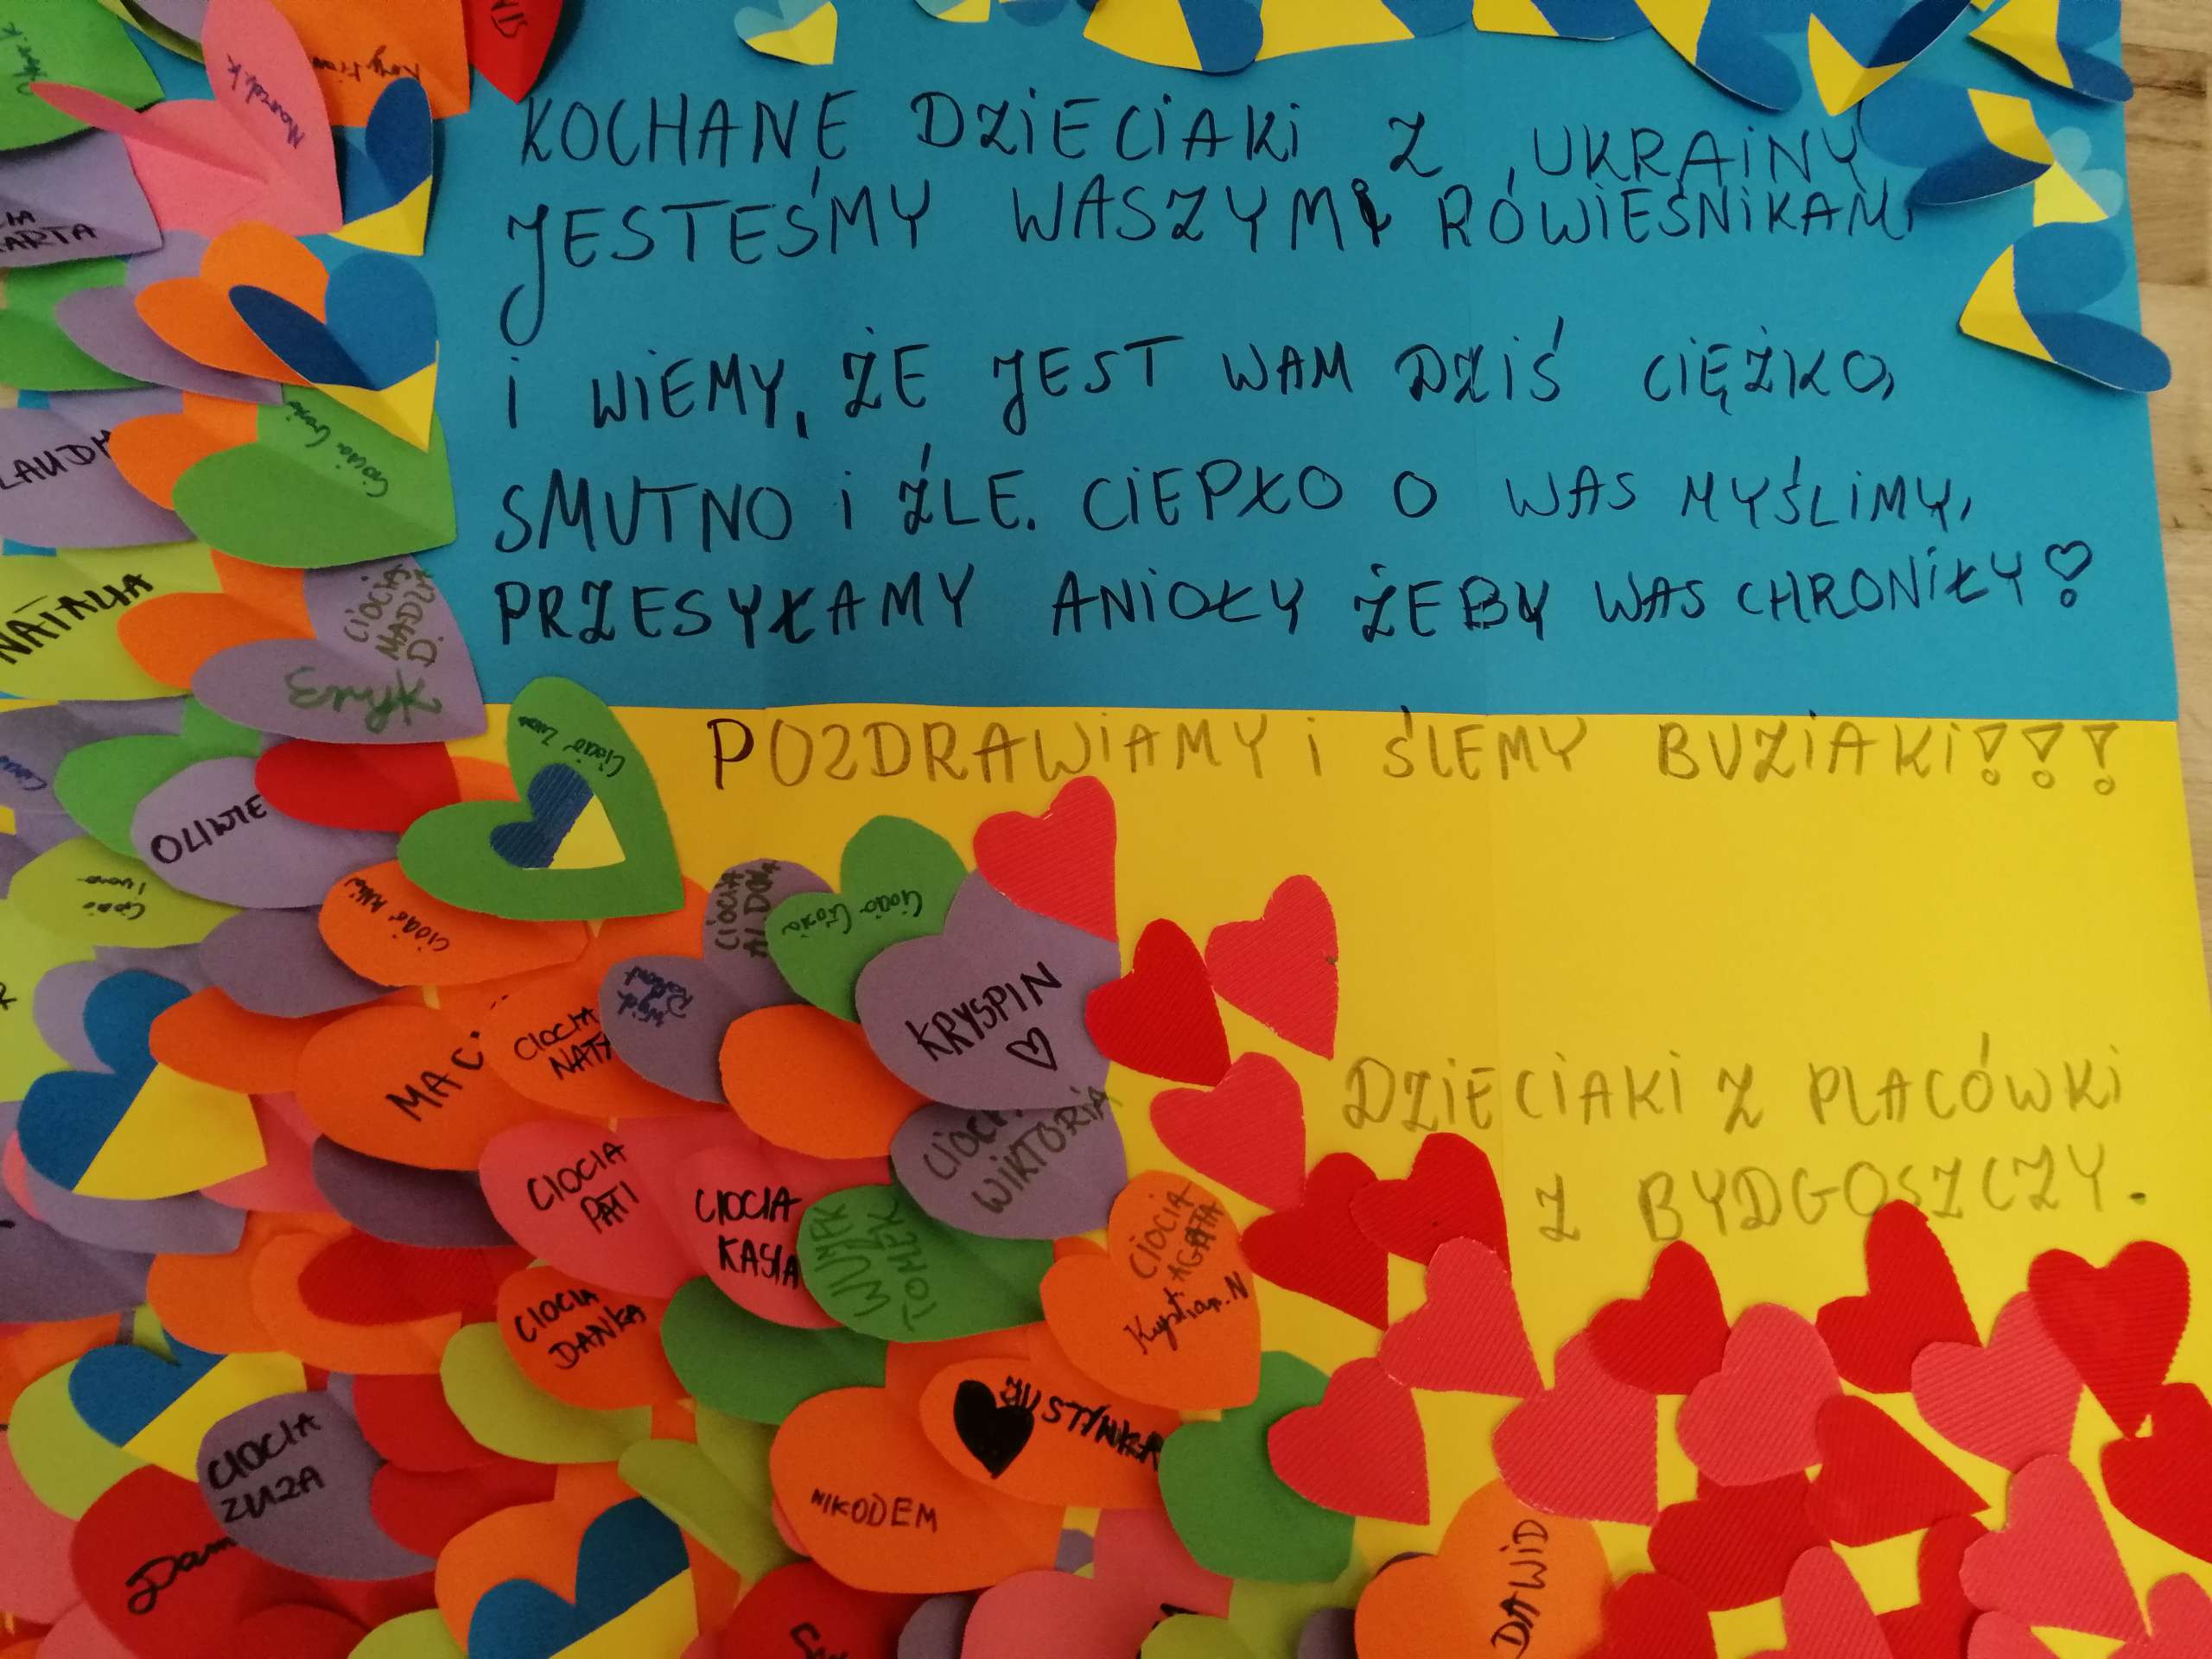 KOCHANE DZIECIAKI Z UKRAINY
JESTEŚMY WASZYMI RÓWIEŚNIKAMI
I WIEMY, ŻE JEST WAM DZIŚ CIĘŻKO,
SMUTNO I ŹLE. CIEPŁO O WAS MYŚLIMY,
PRZESYŁAMY ANIOŁY ŻEBY WAS CHRONIŁY!
POZDRAWIAMY I ŚLEMY BUZIAKI!!!
DZIECIAKI Z PLACÓWKI
Z BYDGOSZCZY.
NATALIA
CIOCIA
MADZIA
D.
OLIWIE
Ciocia Zuza
CIOCIA
ALDONA
Ciocia Gosia
KRYSPIN
CIOCIA
WIKTORIA
CIOCIA
PATI
CIOCIA
KASIA
WUJEK
TOMEK
CIOCIA
AGATA
Krystian.N
CIOCIA
DANKA
JUSTYNKA
NIKODEM
CIOCIA
ZUZA
DAWID